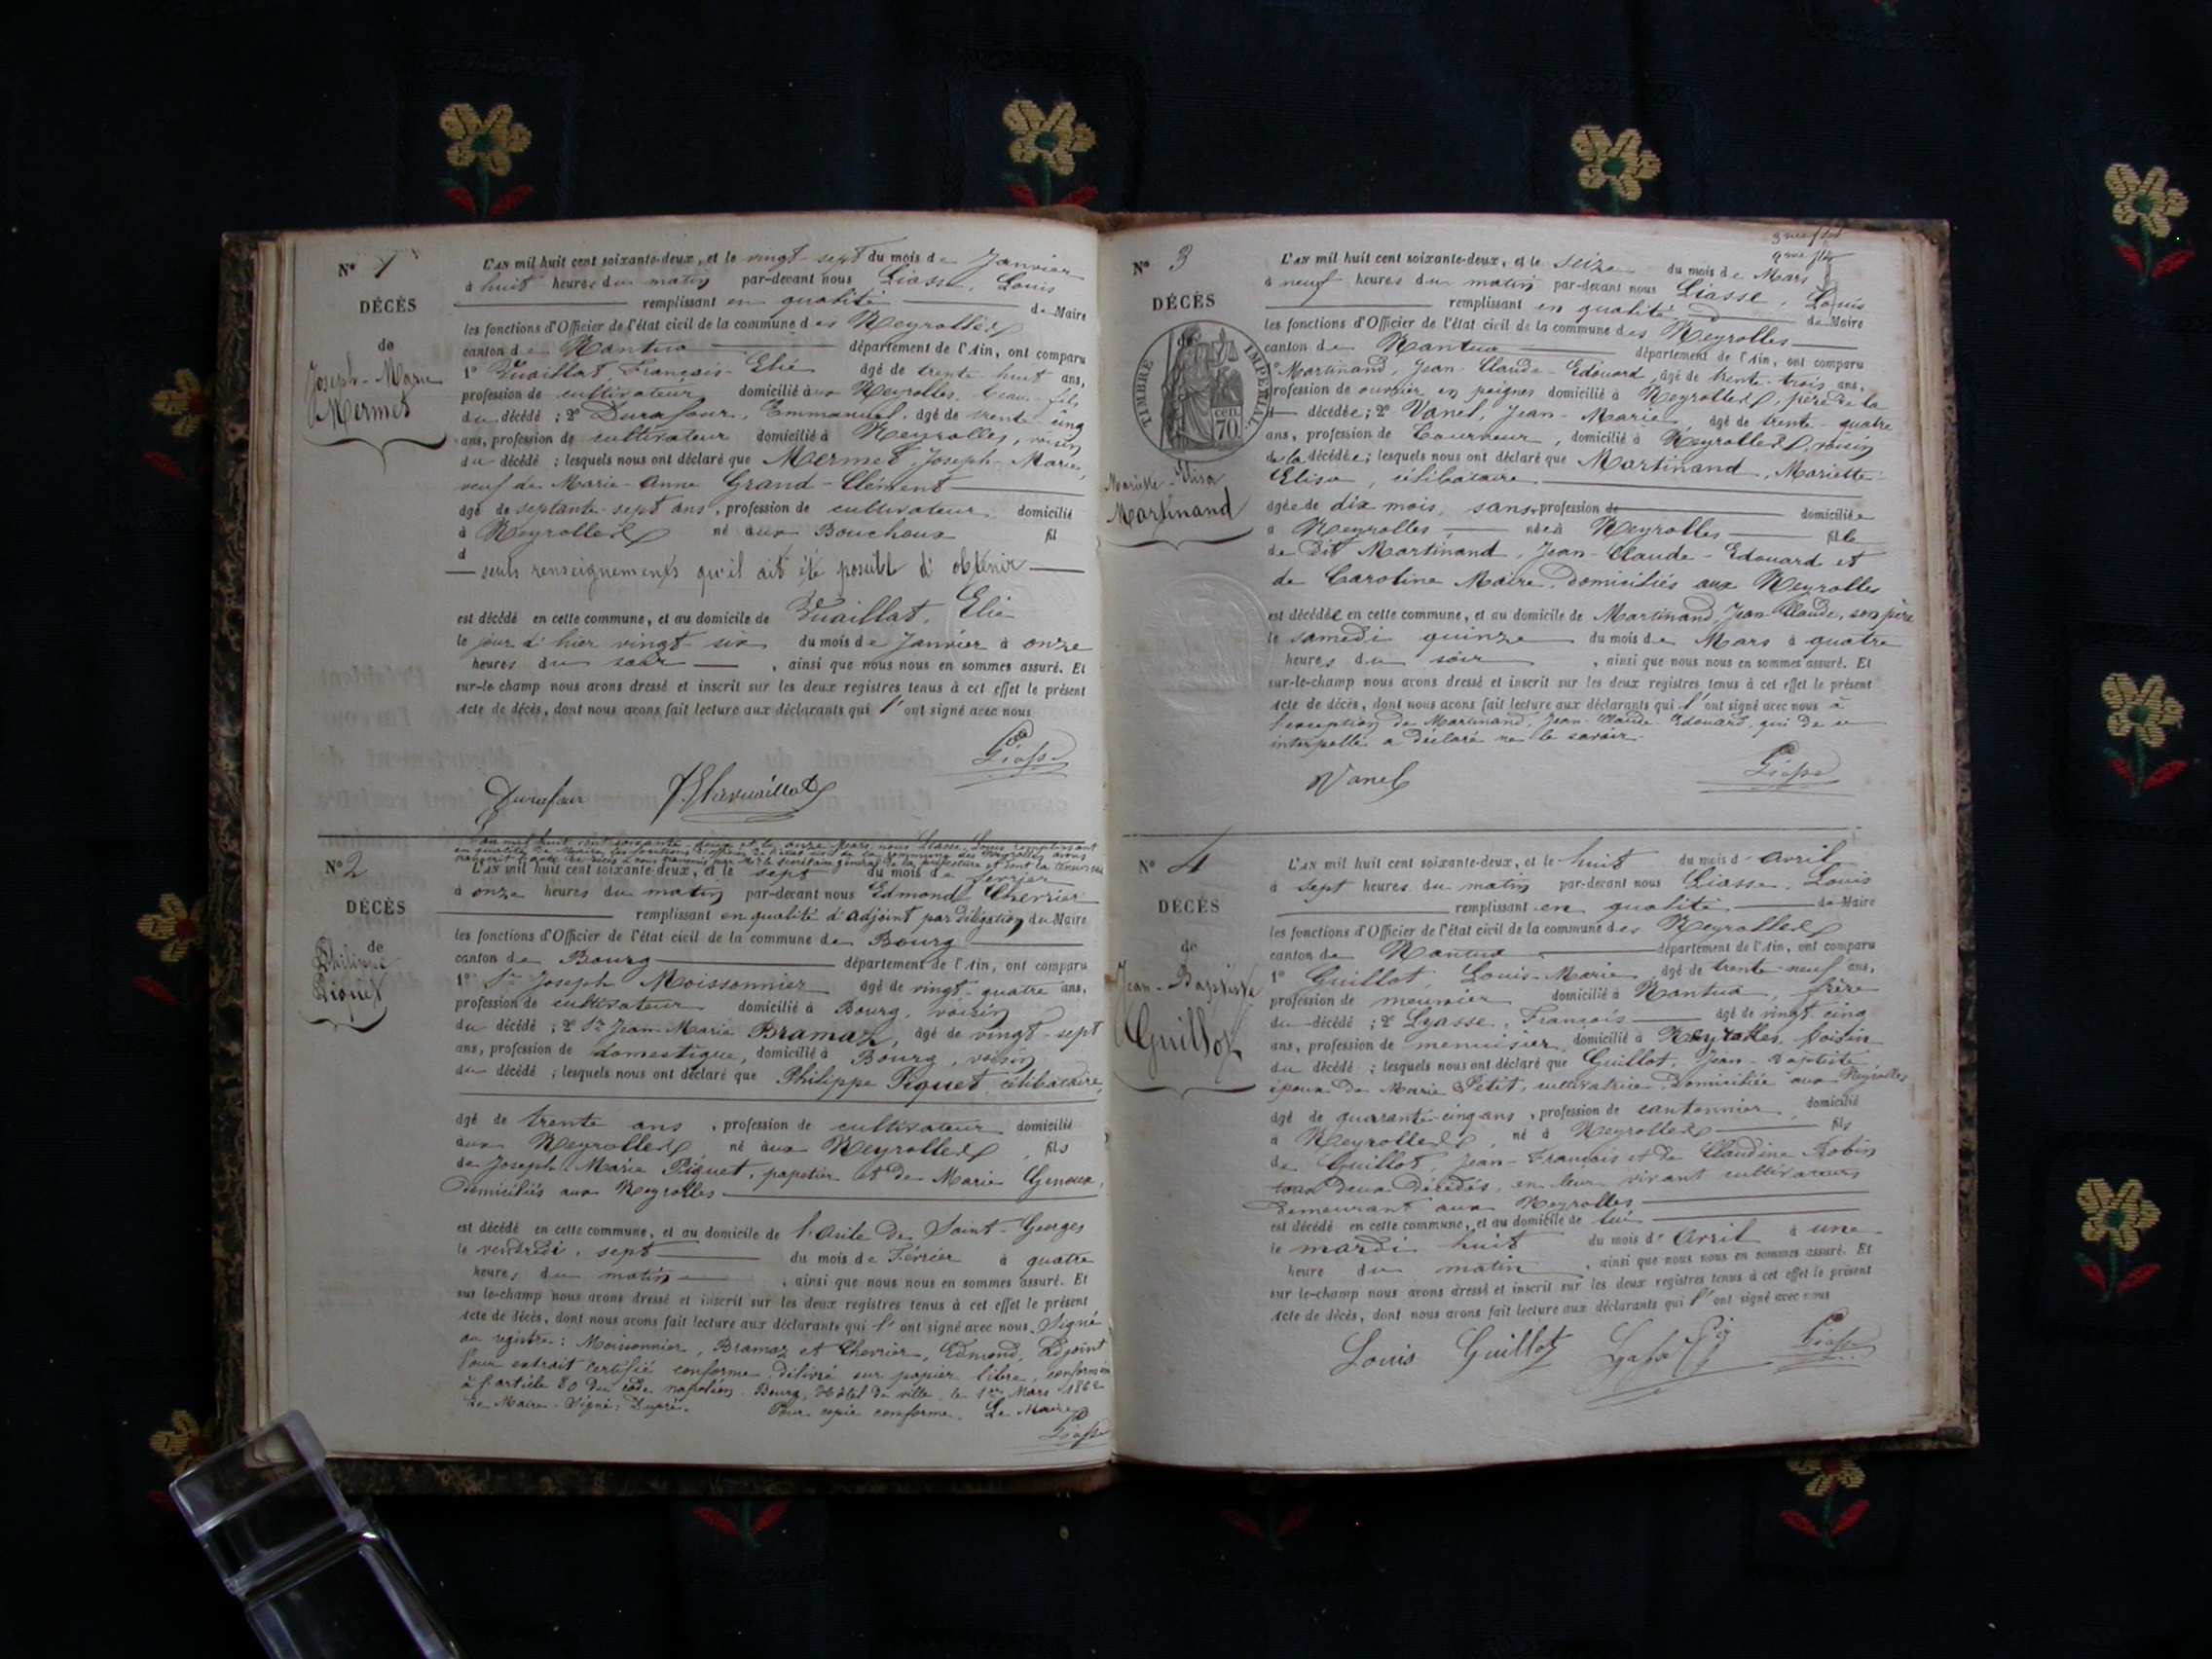 N° 1
DÉCÈS
de
Joseph-Marie
Mermet
L'AN mil huit cent soixante-deux, et le vingt-sept du mois de Janvier
à huit heures du matin par-devant nous Liasse, Louis
remplissant en qualité de Maire
les fonctions d'Officier de l'état civil de la commune des Neyrolles
canton de Nantua département de l'Ain, ont comparu
1° Vuaillat François-Elie âgé de trente-huit ans,
profession de cultivateur domicilié aux Neyrolles, beau-fils
du décédé ; 2° Durafour, Emmanuel, âgé de trente-cinq
ans, profession de cultivateur domicilié à Neyrolles, voisin
du décédé ; lesquels nous ont déclaré que Mermet Joseph-Marie,
veuf de Marie-Anne Grand-Clément
âgé de septante-sept ans, profession de cultivateur, domicilié
à Neyrolles né aux Bouchoux fil
d
seuls renseignements qu'il ait été possible d'obtenir
est décédé en cette commune, et au domicile de Vuaillat, Elie
le jour d'hier vingt-six du mois de Janvier à onze
heures du soir, ainsi que nous nous en sommes assuré. Et
sur-le-champ nous avons dressé et inscrit sur les deux registres tenus à cet effet le présent
Acte de décès, dont nous avons fait lecture aux déclarants qui l'ont signé avec nous
Liasse
Durafour
N° 2
DÉCÈS
de
Philippe
Piquet
L'an mil huit cent soixante-deux et le onze Mars, nous Liasse, Louis remplissant
en qualité de Maire les fonctions d'officier de l'état civil de la commune des Neyrolles avons
transcrit l'acte de décès à nous transmis par Mr le secrétaire général de la préfecture et dont la teneur suit
L'AN mil huit cent soixante-deux, et le sept du mois de février
à onze heures du matin par-devant nous Edmond Chevrier
remplissant en qualité d'Adjoint par délégation du Maire
les fonctions d'Officier de l'état civil de la commune de Bourg
canton de Bourg département de l'Ain, ont comparu
1° Sr Joseph Moissonnier âgé de vingt-quatre ans,
profession de cultivateur domicilié à Bourg, voisin
du décédé ; 2° Sr Jean-Marie Bramaz, âgé de vingt-sept
ans, profession de domestique, domicilié à Bourg, voisin
du décédé ; lesquels nous ont déclaré que Philippe Piquet, célibataire,
âgé de trente ans, profession de cultivateur domicilié
aux Neyrolles né aux Neyrolles, fils
de Joseph Marie Piquet, papetier et de Marie Genoux,
domiciliés aux Neyrolles
est décédé en cette commune, et au domicile de l'Asile de Saint-Georges
le vendredi, sept du mois de Février à quatre
heures du matin, ainsi que nous nous en sommes assuré. Et
sur le-champ nous avons dressé et inscrit sur les deux registres tenus à cet effet le présent
Acte de décès, dont nous avons fait lecture aux déclarants qui l'ont signé avec nous. Signé
au registre : Moissonnier, Bramaz et Chevrier, Edmond, Adjoint
Pour extrait certifié conforme, délivré sur papier libre, conformém
à l'article 80 du code napoléon. Bourg, Hôtel de ville, le 1er Mars 1862
Le Maire. Signé : Dupré. Pour copie conforme. Le Maire
Liasse
N° 3
DÉCÈS
de
TIMBRE IMPÉRIAL
cen. 70
Mariette-Elisa
Martinand
L'AN mil huit cent soixante-deux, et le seize du mois de Mars
à neuf heures du matin par-devant nous Liasse, Louis
remplissant en qualité de Maire
les fonctions d'Officier de l'état civil de la commune des Neyrolles
canton de Nantua département de l'Ain, ont comparu
1° Martinand, Jean-Claude-Edouard, âgé de trente-trois ans,
profession de ouvrier en peignes domicilié à Neyrolles, père de la
décédée ; 2° Vanel, Jean-Marie, âgé de trente-quatre
ans, profession de Tourneur, domicilié à Neyrolles, voisin
de la décédée ; lesquels nous ont déclaré que Martinand, Mariette
Elisa, célibataire
âgée de dix mois, sans profession de domiciliée
à Neyrolles, née à Neyrolles fille
de dit Martinand, Jean-Claude-Edouard et
de Caroline Maire, domiciliés aux Neyrolles
est décédée en cette commune, et au domicile de Martinand, Jean-Claude, son père
le samedi quinze du mois de Mars à quatre
heures du soir, ainsi que nous nous en sommes assuré. Et
sur-le-champ nous avons dressé et inscrit sur les deux registres tenus à cet effet le présent
Acte de décès, dont nous avons fait lecture aux déclarants qui l'ont signé avec nous à
l'exception de Martinand, Jean-Claude-Edouard, qui de ce
interpellé a déclaré ne le savoir.
Vanel
Liasse
N° 4
DÉCÈS
de
Jean-Baptiste
Guillot
L'AN mil huit cent soixante-deux, et le huit du mois d'Avril
à sept heures du matin par-devant nous Liasse, Louis
remplissant en qualité de Maire
les fonctions d'Officier de l'état civil de la commune des Neyrolles
canton de Nantua département de l'Ain, ont comparu
1° Guillot, Louis-Marie, âgé de trente-neuf ans,
profession de meunier domicilié à Nantua, frère
du décédé ; 2° Lyasse, François âgé de vingt cinq
ans, profession de menuisier, domicilié à Neyrolles, voisin
du décédé ; lesquels nous ont déclaré que Guillot, Jean-Baptiste
époux de Marie Petit, cultivatrice, domiciliée aux Neyrolles
âgé de quarante-cinq ans, profession de cantonnier, domicilié
à Neyrolles, né à Neyrolles fils
de Guillot, Jean-François et de Claudine Robin
tous deux décédés, en leur vivant cultivateurs
demeurant aux Neyrolles
est décédé en cette commune, et au domicile de lui
le mardi huit du mois d'Avril à une
heure du matin, ainsi que nous nous en sommes assuré. Et
sur le-champ nous avons dressé et inscrit sur les deux registres tenus à cet effet le présent
Acte de décès, dont nous avons fait lecture aux déclarants qui l'ont signé avec nous
Louis Guillot
Liasse